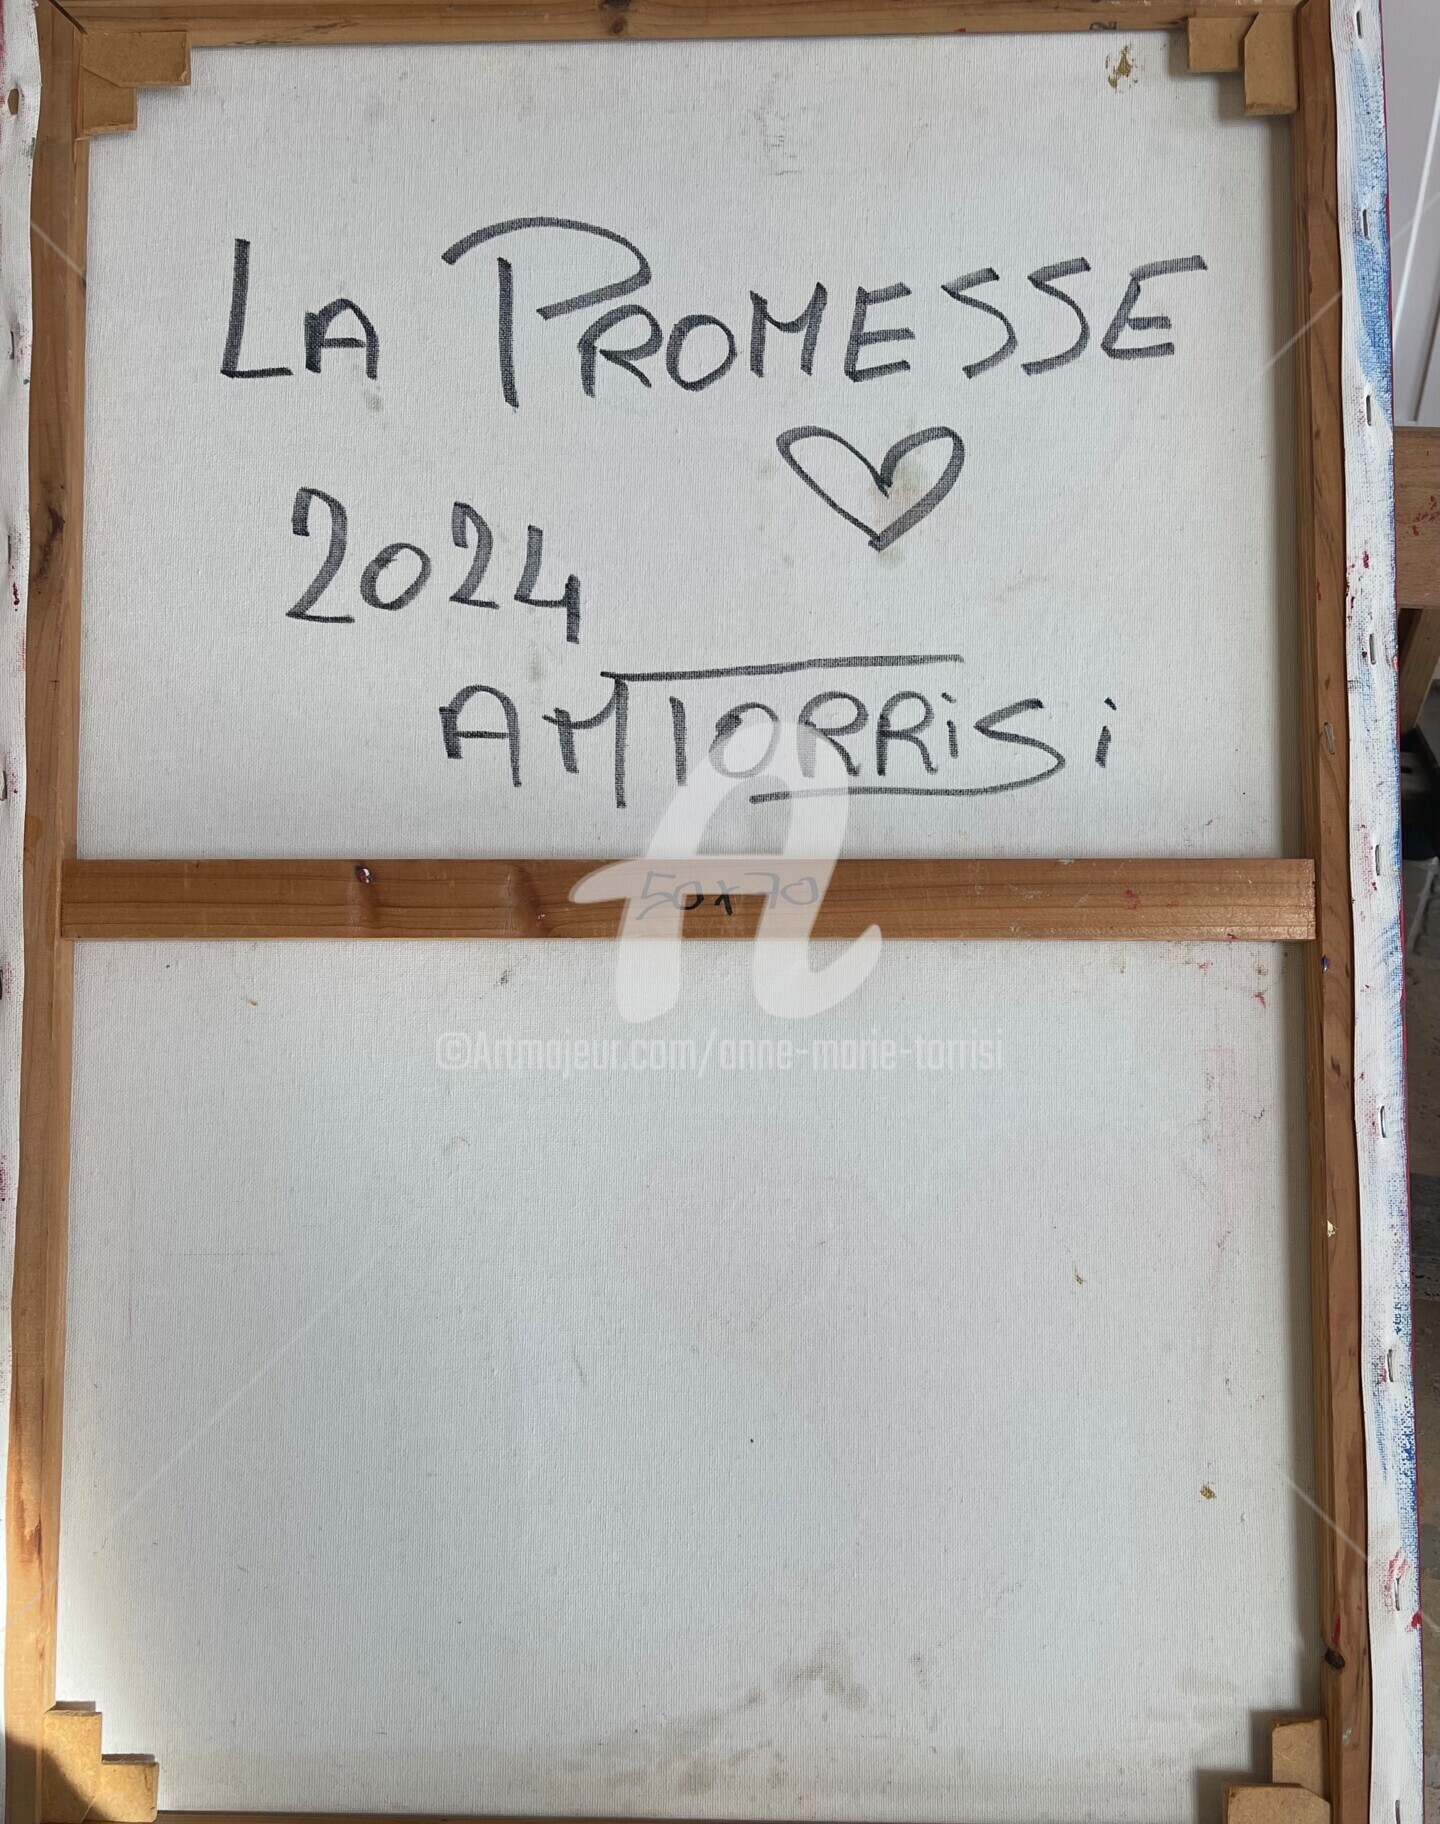 LA PROMESSE
2024
AMTORRiSi
50x70
©Artmajeur.com/anne-marie-torrisi